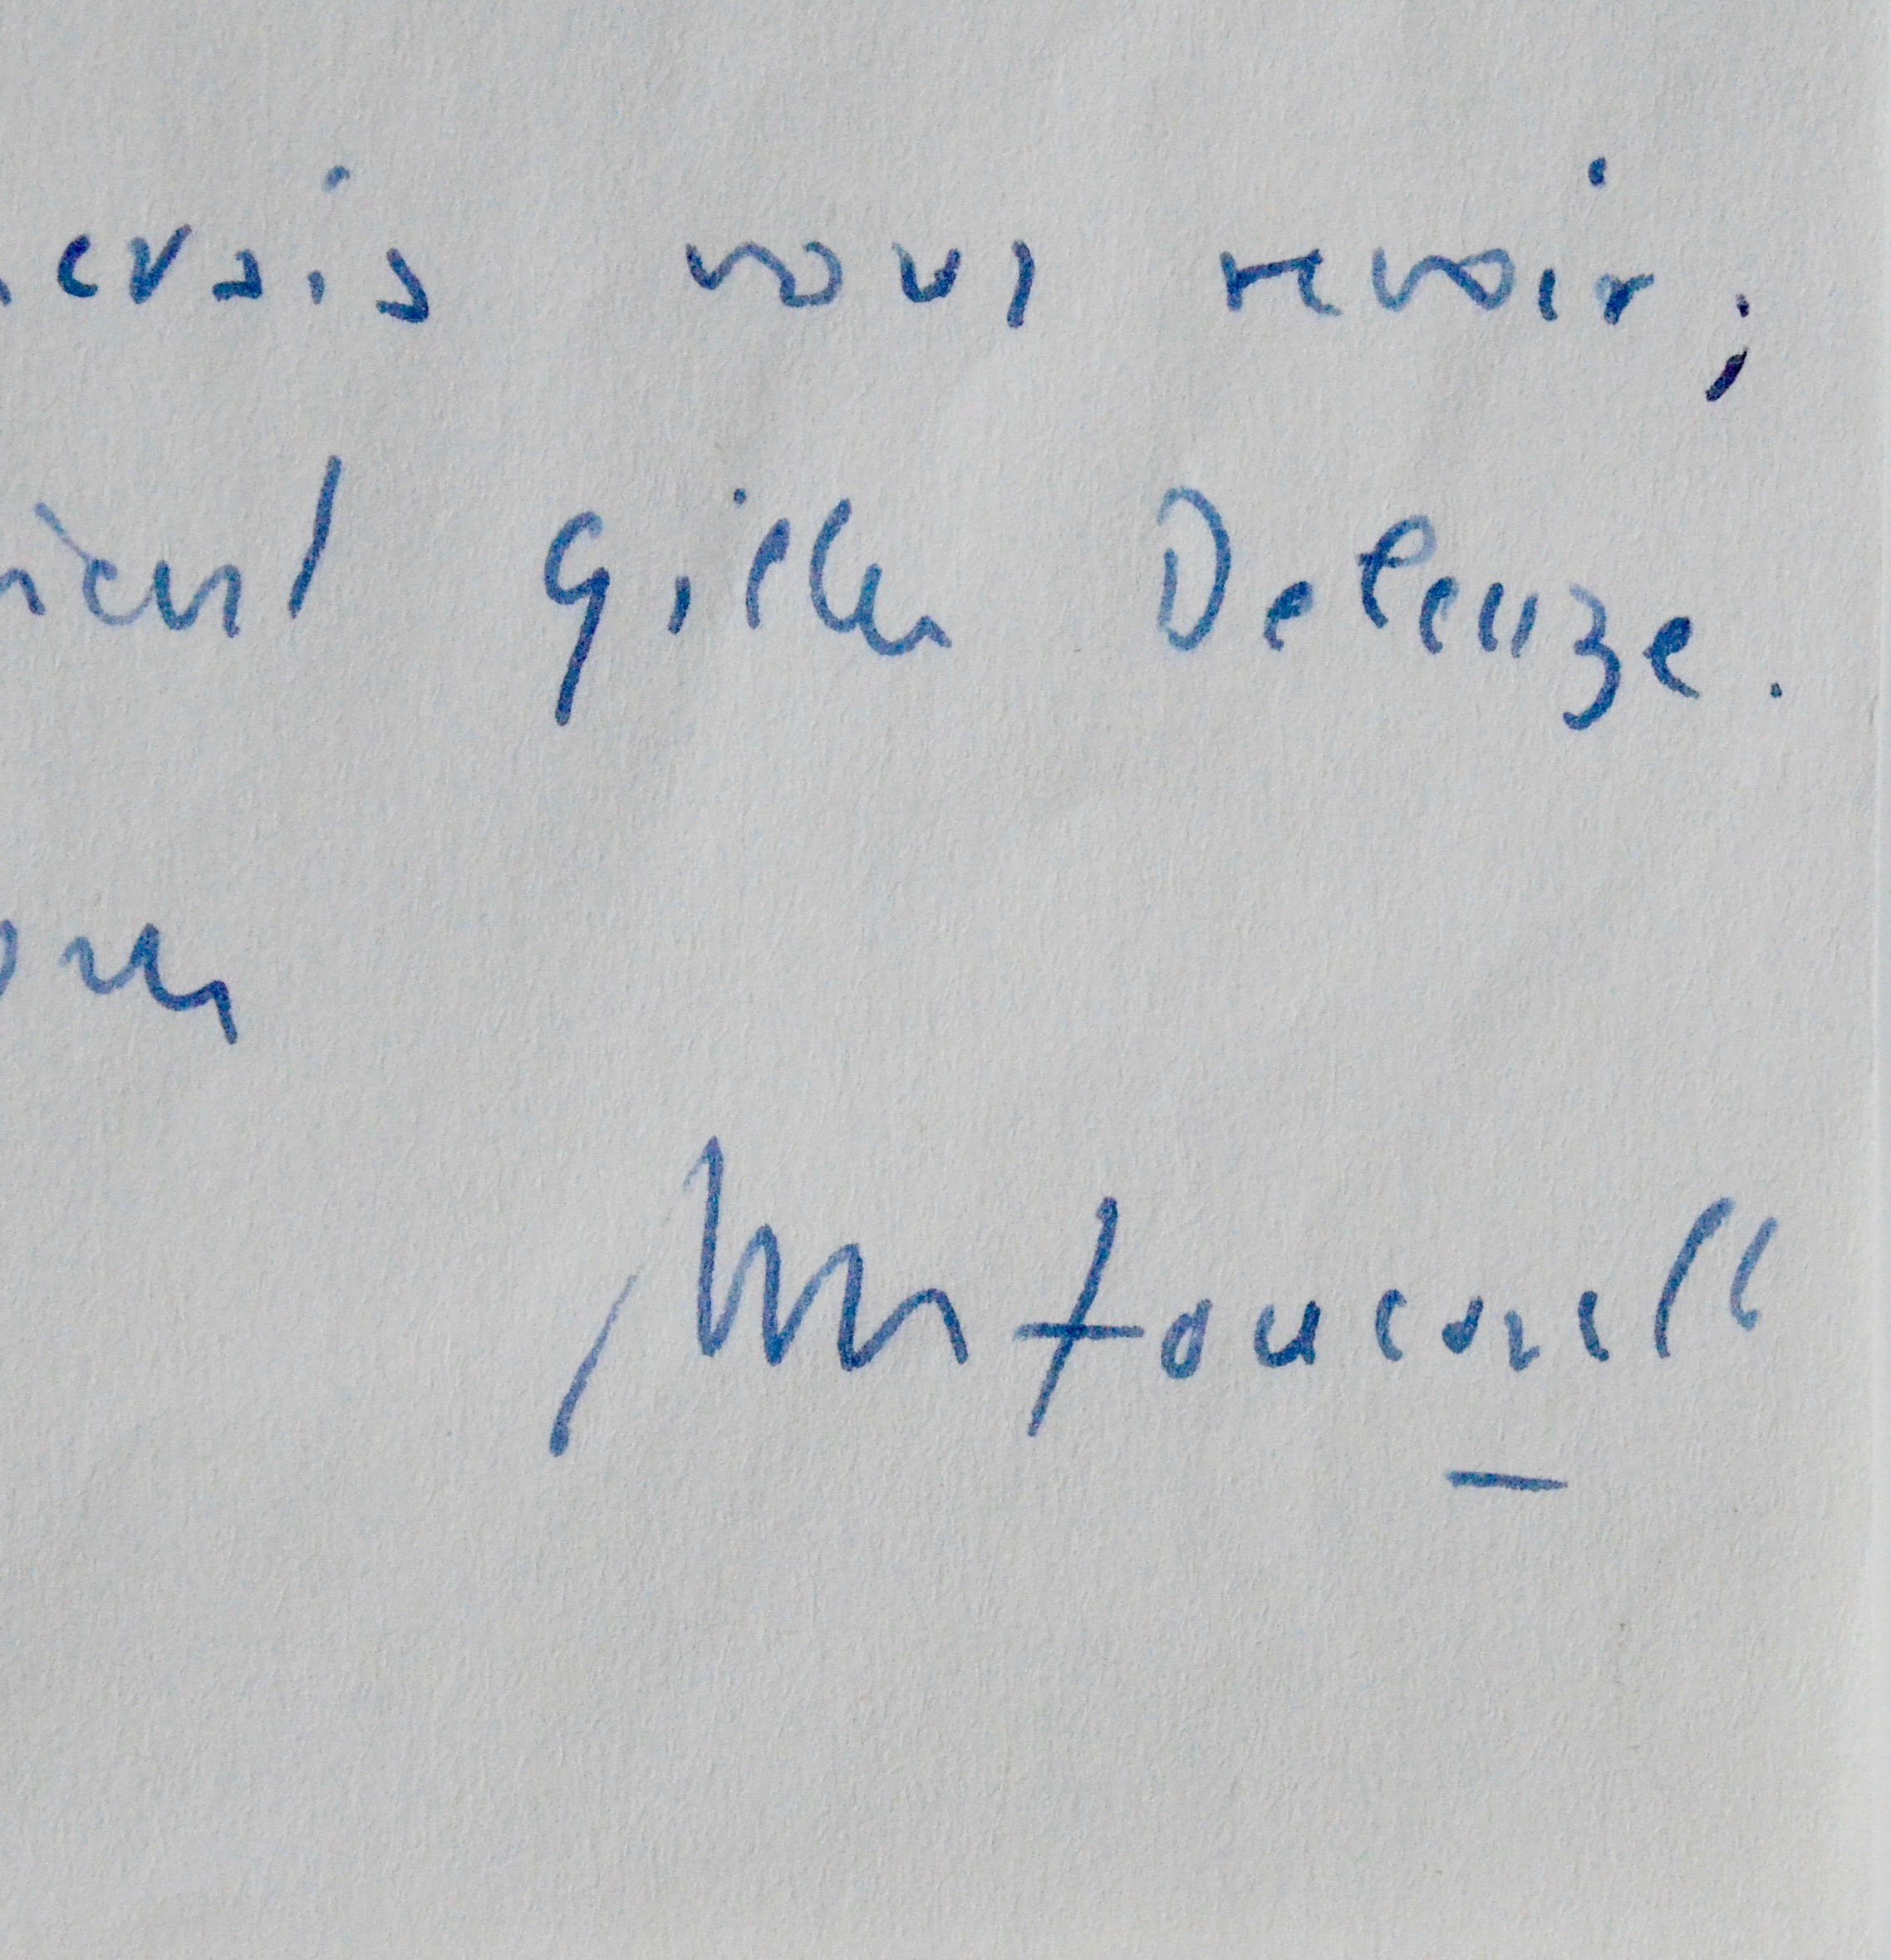 erais vous revoir;
Gilles Deleuze.
M Foucault